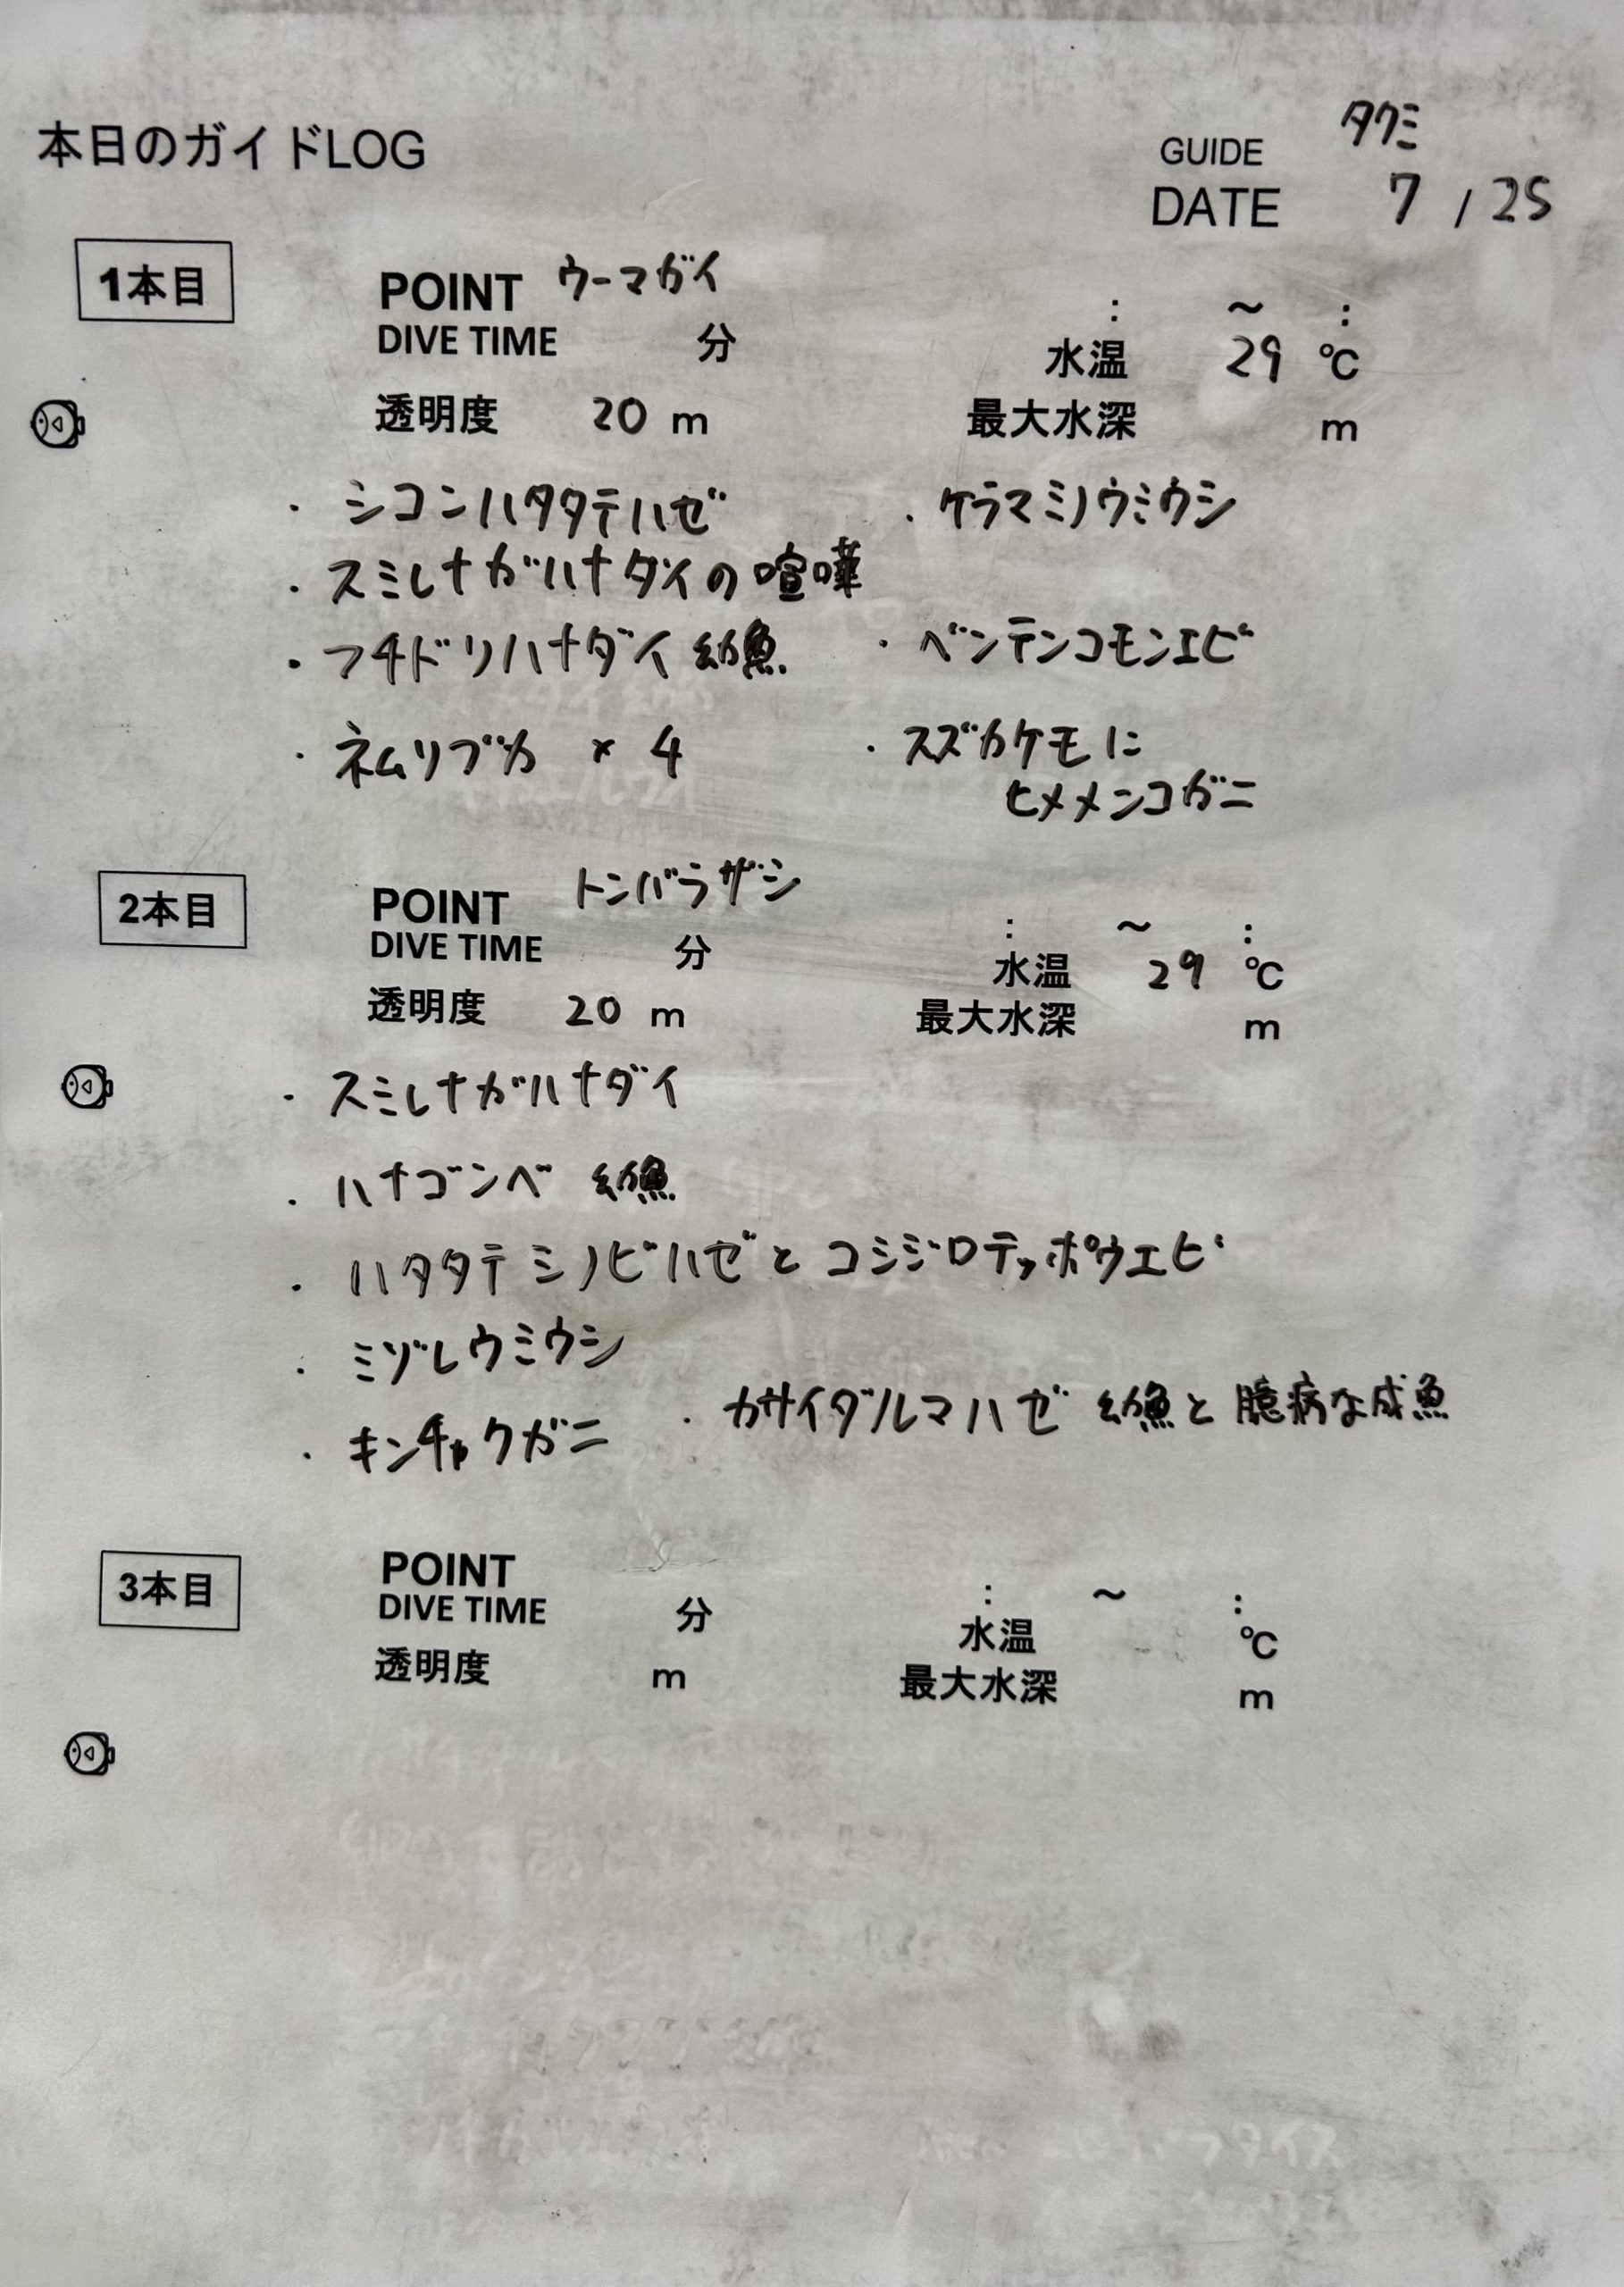 本日のガイドLOG
GUIDE タクミ
DATE 7 / 25
1本目
POINT ウーマガイ
: ～ :
DIVE TIME 分
水温 29 ℃
透明度 20 m
最大水深 m
・シコンハタタテハゼ
・ケラマミノウミウシ
・スミレナガハナダイの喧嘩
・フチドリハナダイ 幼魚
・ベンテンコモンエビ
・ネムリブカ × 4
・スズカケモに
ヒメメンコガニ
2本目
POINT トンバラザシ
: ～ :
DIVE TIME 分
水温 29 ℃
透明度 20 m
最大水深 m
・スミレナガハナダイ
・ハナゴンベ 幼魚
・ハタタテシノビハゼと コシジロテッポウエビ
・ミゾレウミウシ
・キンチャクガニ
・カサイダルマハゼ 幼魚と 臆病な成魚
3本目
POINT
: ～ :
DIVE TIME 分
水温 ℃
透明度 m
最大水深 m